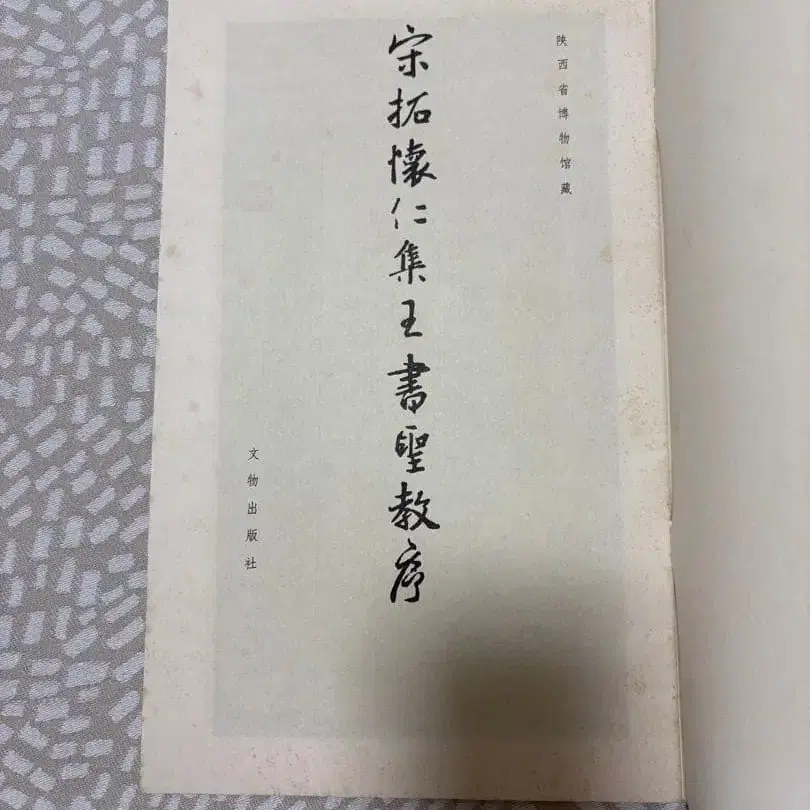 陕西省博物馆藏
宋拓懷仁集王書聖教序
文物出版社